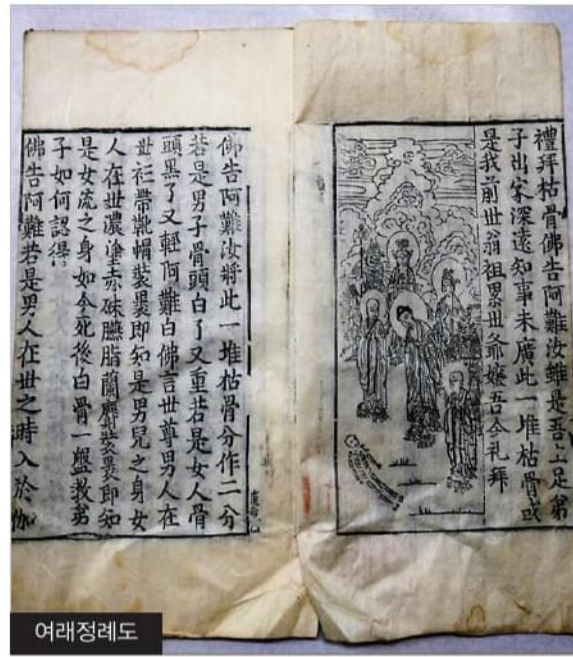 禮拜枯骨佛告阿難汝雖是吾上足弟
子出家深遠知事未廣此一堆枯骨或
是我前世翁祖累世爺孃吾今礼拜
佛告阿難汝將此一堆枯骨分作二分
若是男子骨頭白了又重若是女人骨
頭黑了又輕阿難白佛言世尊男人在
世衫帶靴帽裝裹即知是男兒之身女
人在世濃塗赤硃臙脂蘭麝裝裹即知
是女流之身如今死後白骨一盤教弟
子如何認得
佛告阿難若是男人在世之時入於伽
여래정례도